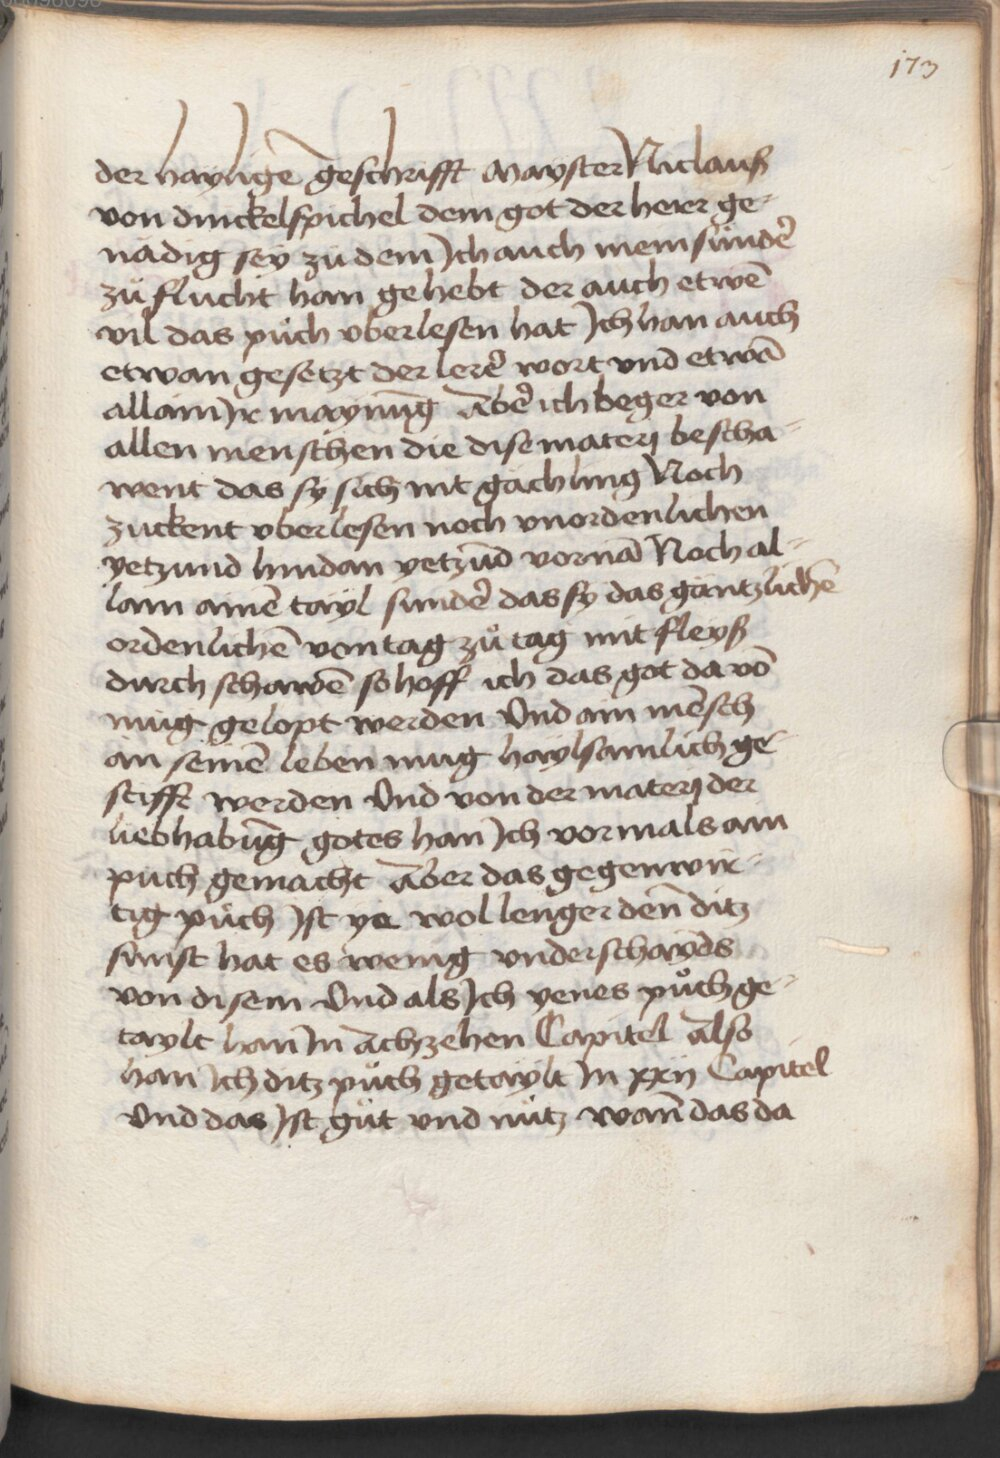 173
der haÿligē geschrifft Mayster Niclauß
von dinckelspichel dem got der herr ge-
nädig seÿ zu dem Ich auch mein sundē
zů flucht han gehebt der auch etwē
vil das půch vberlesen hat Ich han auch
etwan gesetzt der lerē wort vnd etwā
allain Ir maynūg Abē ich beger von
allen menschen die dise matery bescha-
went das sy sich nit gächling Noch
zuckent vberlesen noch vnordenlichen
yetzund hindan yetzūd vornā Noch al-
lain ainē tayl sundē das sy das gäntzlichē
ordenlichē von tag zů tag mit fleyß
durch schawē so hoff ich das got da vō
müg gelopt werden Vnd ain mēsch
an seinē leben mug haylsamlich ge-
stifft werden Vnd von der matery der
liebhabūg gotes han Ich vormals ain
puch gemacht Aber das gegenwir-
tig půch Ist ye wol lenger deñ ditz
sunst hat es wenig vnderschayds
von disem Vnd als Ich yenes půch ge-
taylt han In achzehen Capitel also
han Ich ditz půch getaylt In xxij Capitel
Vnd das Ist gůt vnd nütz wañ das da